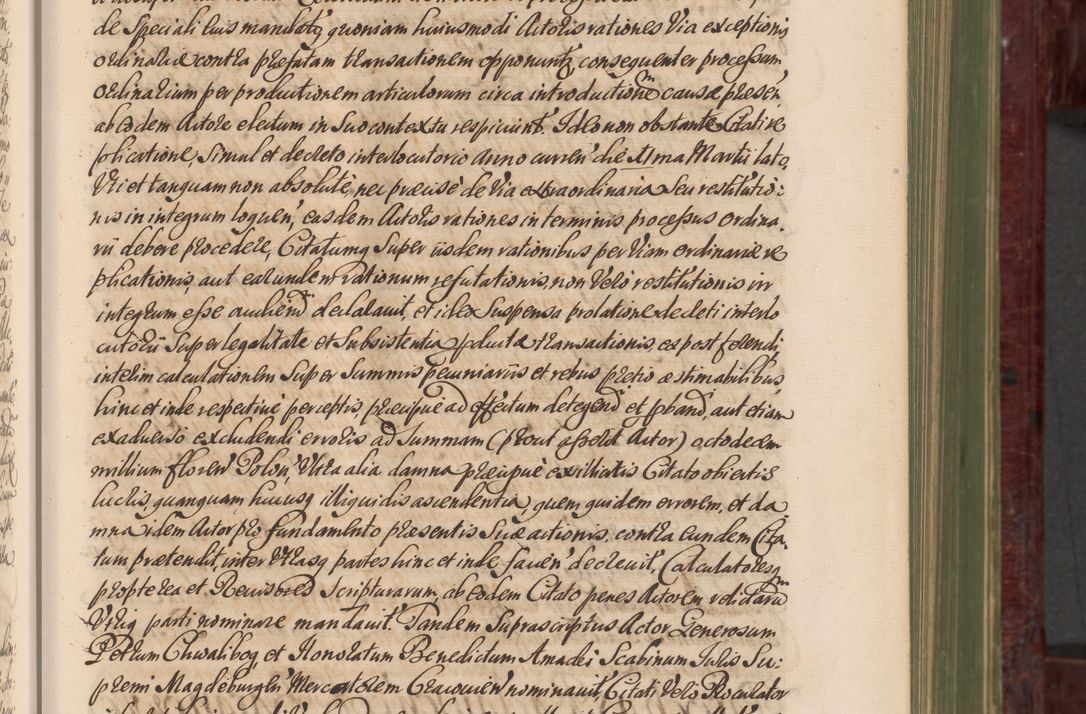 de Speciali eius mandato, quoniam huiusmodi Actoris rationes Via exceptionis
ordinariæ contra præfatam transactionem opponuntr, consequenter processum
Ordinarium per productionem articulorum circa introductionem causæ præsen
ab eodem Actore electum in Suo contextu respiciunt. Ideo non obstante Citati re
plicatione, Simul et decreto interlocutorio Anno curren' die XIma Martii lato,
Uti et tanquam non absolute, nec præcise de Via extraordinaria Seu restitutio:
nis in integrum loquen', easdem Actoris rationes in terminis processus Ordina,
rii debere procedere, Citatumq Super iisdem rationibus per Viam ordinariæ re
plicationis, aut earundem rationum refutationis, non Vero restitutionis in
integrum esse audiend declaravit, et ideo Suspensa prolatione decreti interlo
cutorii Super legalitate et Subsistentia productæ transactionis, ea post ferendi,
interim calculationem Super Summis pecuniariis et rebus prætio æstimabilibus,
hinc et inde respective perceptis, præcipue ad effectum detegend et pband, aut etiam
ex adverso excludendi erroris ad Summam (prout asserit Actor) octodecem
millium floren' Polon', Ultra alia damna præcipue ex illicitis Citato obiectis
lucris, quanquam hucusq illiquidis ascendentia, quem quidem errorem, et da
mna idem Actor pro fundamento præsentis Suæ actionis, contra eundem Cita
tum prætendit, inter Utrasq partes hinc et inde facien' decrevit, Calculatoresq
propterea et Revisores Scripturarum, ab eodem Citato penes Actorem relictarum
Utriq parti nominare mandavit. Tandem Suprascriptus Actor Generosum
Petrum Chwalibog, et Honoratum Benedictum Amadei Scabinum Iuris Su:
premi Magdeburgen' Mercatorem Cracovien' nominavit, Citati Vero Procurator